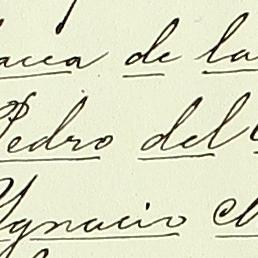 de la
Pedro del
Ygnacio